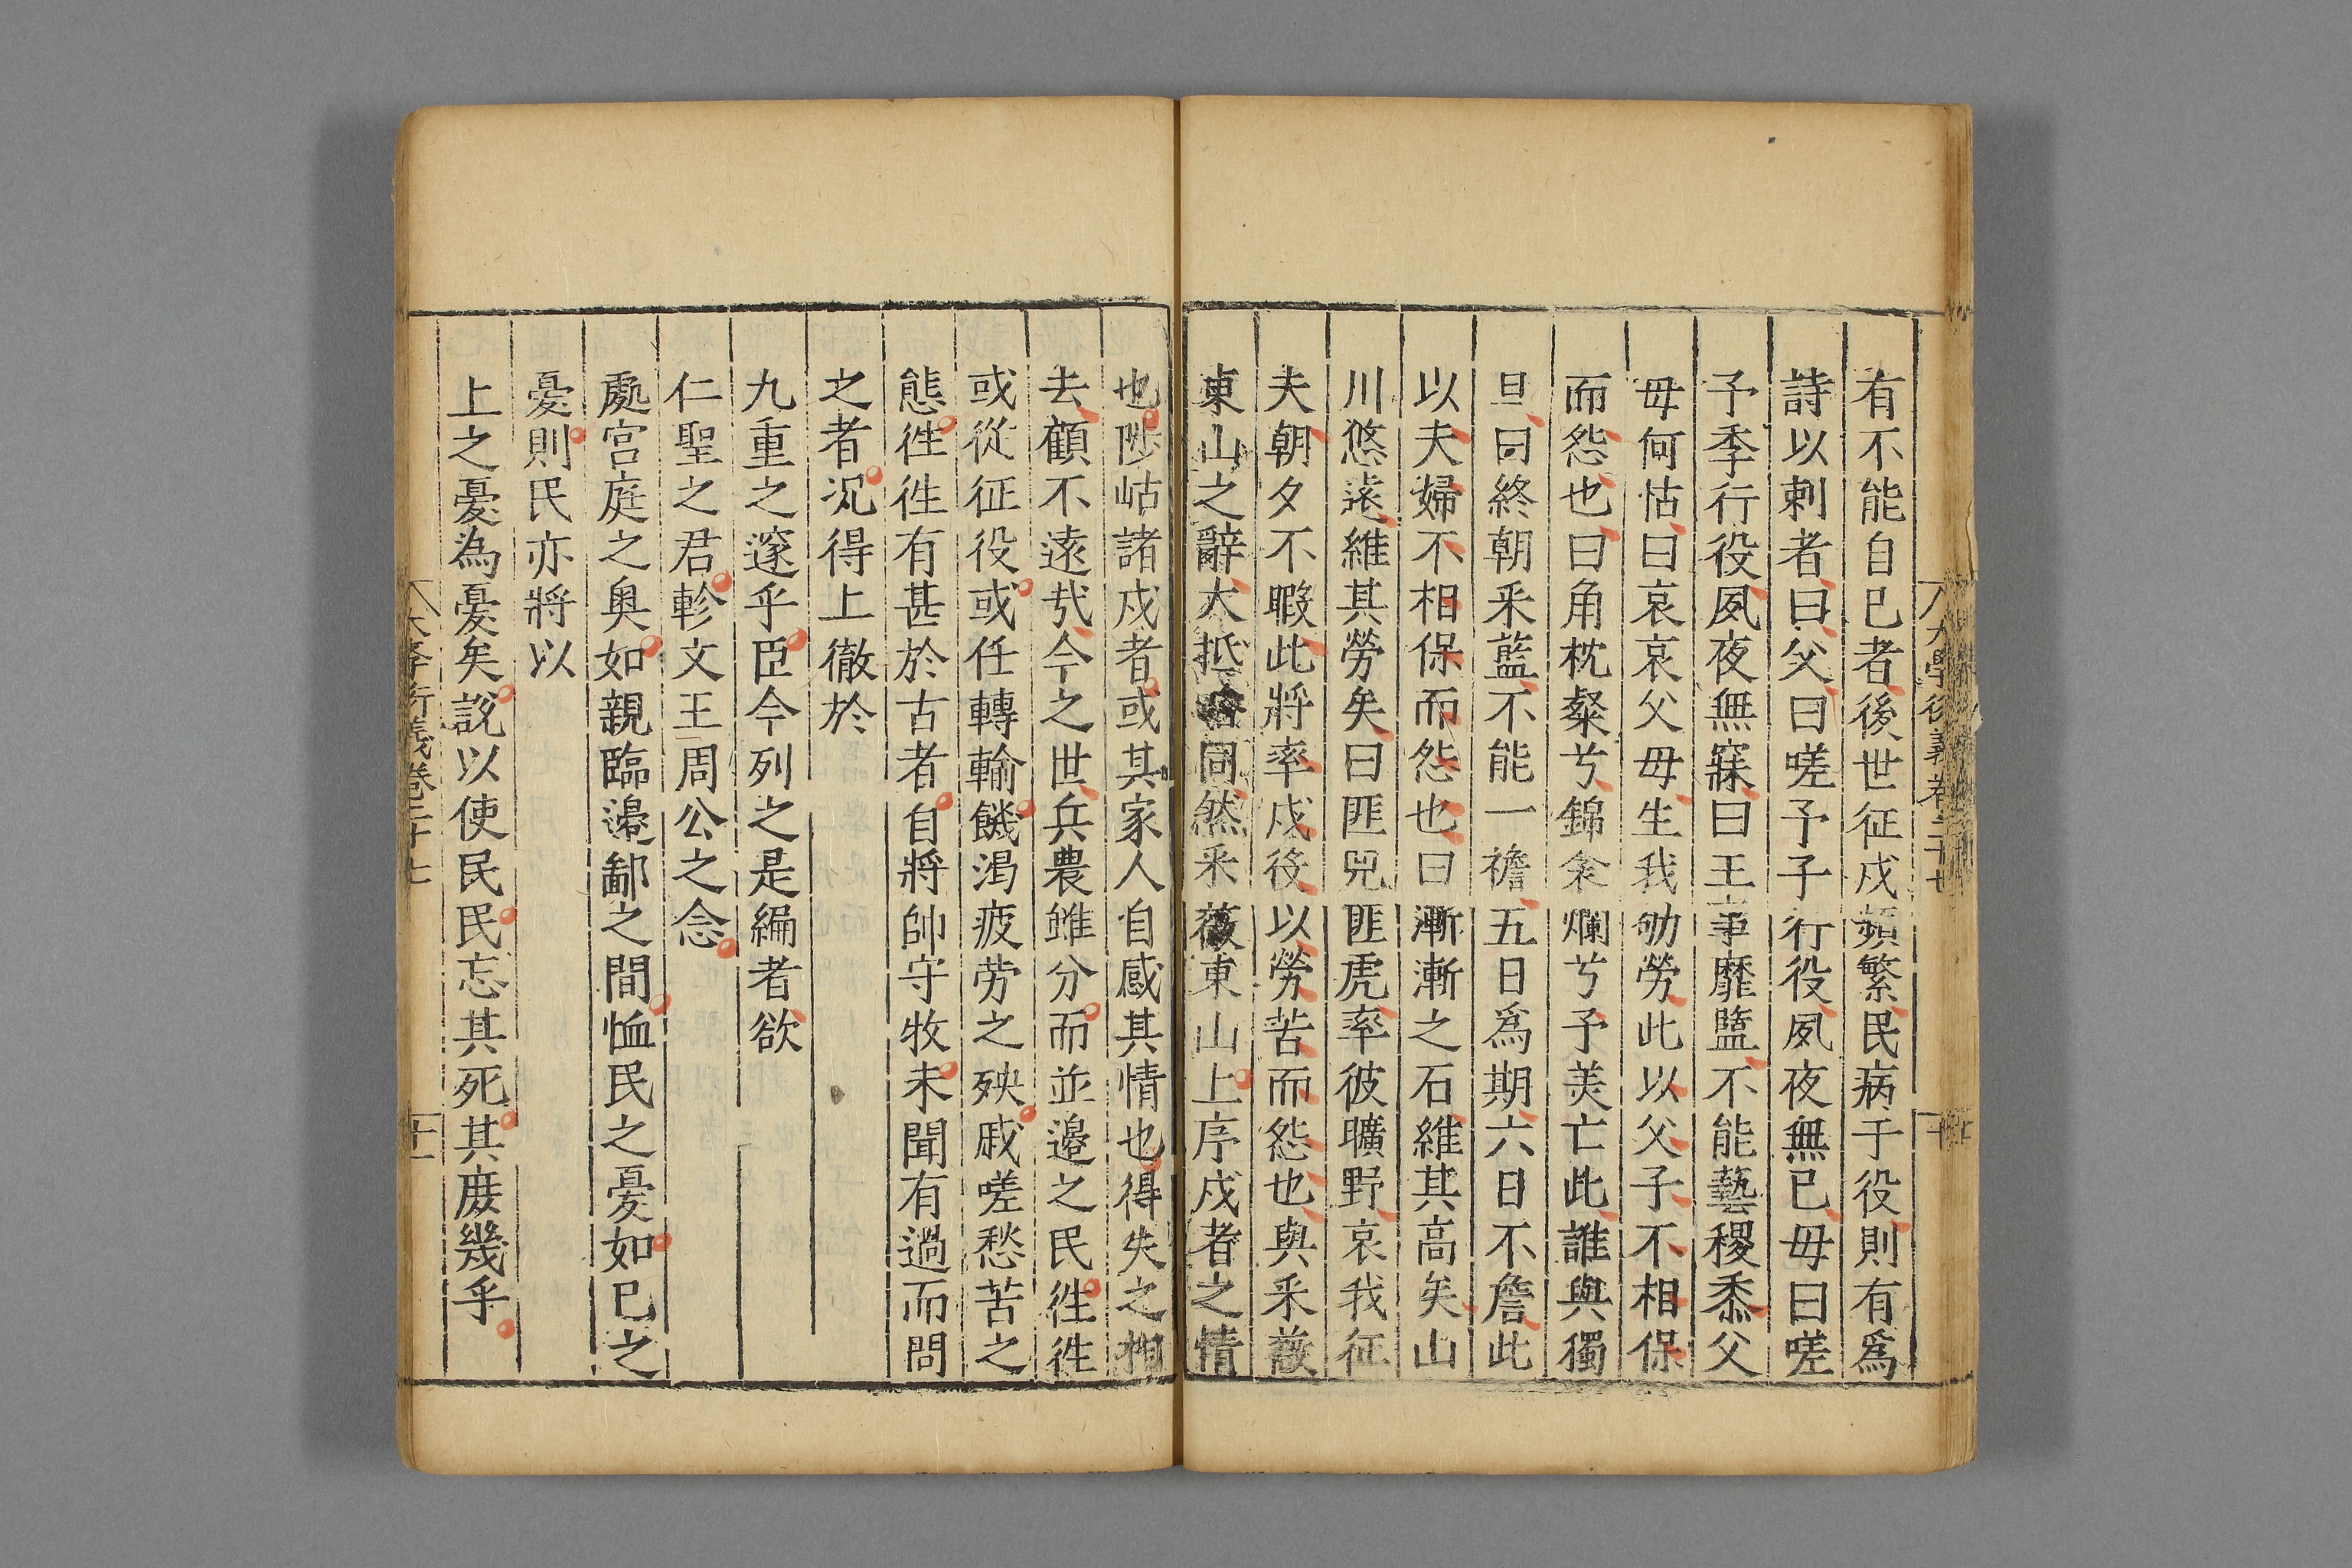 大學衍義卷二十七
十
有不能自已者後世征戍頻繁民病于役則有爲
詩以刺者曰父曰嗟予子行役夙夜無已毋曰嗟
予季行役夙夜無寐曰王事靡盬不能藝稷黍父
毋何怙曰哀哀父毋生我劬勞此以父子不相保
而怨也曰角枕粲兮錦衾爛兮予美亡此誰與獨
旦曰終朝采藍不能一襜五日爲期六日不詹此
以夫婦不相保而怨也曰漸漸之石維其高矣山
川悠遠維其勞矣曰匪兕匪虎率彼曠野哀我征
夫朝夕不暇此將率戍役以勞苦而怨也與采薇
東山之辭大抵畧同然采薇東山上序戍者之情
也陟岵諸戍者或其家人自感其情也得失之相
去顧不遠哉今之世兵農雖分而並邊之民徃徃
或從征役或任轉輸饑渇疲劳之殃戚嗟愁苦之
態徃徃有甚於古者自將帥守牧未聞有過而問
之者况得上徹於
九重之邃乎臣今列之是編者欲
仁聖之君軫文王周公之念
處宫庭之奥如親臨邊鄙之間恤民之憂如已之
憂則民亦將以
上之憂為憂矣說以使民民忘其死其庻幾乎
大學衍義卷二十七
十一